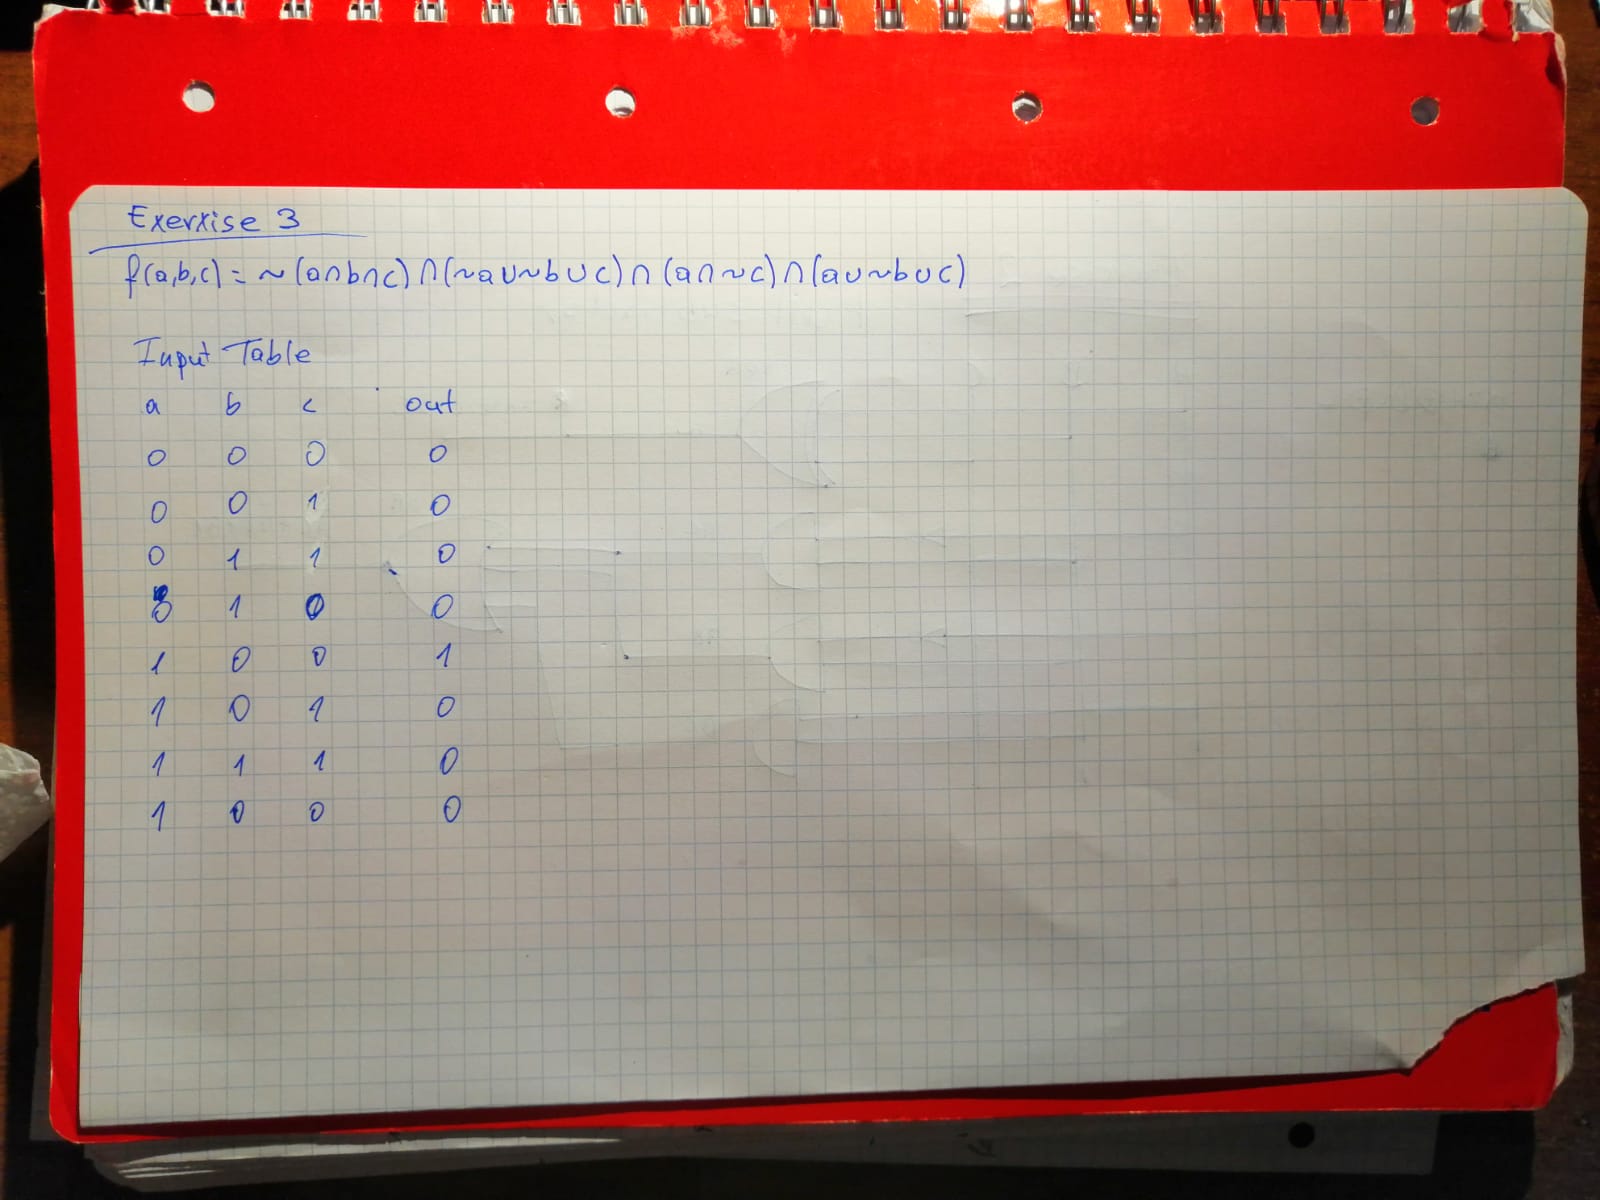 Exerxise 3
f(a,b,c) = ~(a∩b∩c)∩(~a∪~b∪c)∩(a∩~c)∩(a∪~b∪c)
Input Table
a b c out
0 0 0 0
0 0 1 0
0 1 1 0
0 1 0 0
1 0 0 1
1 0 1 0
1 1 1 0
1 0 0 0